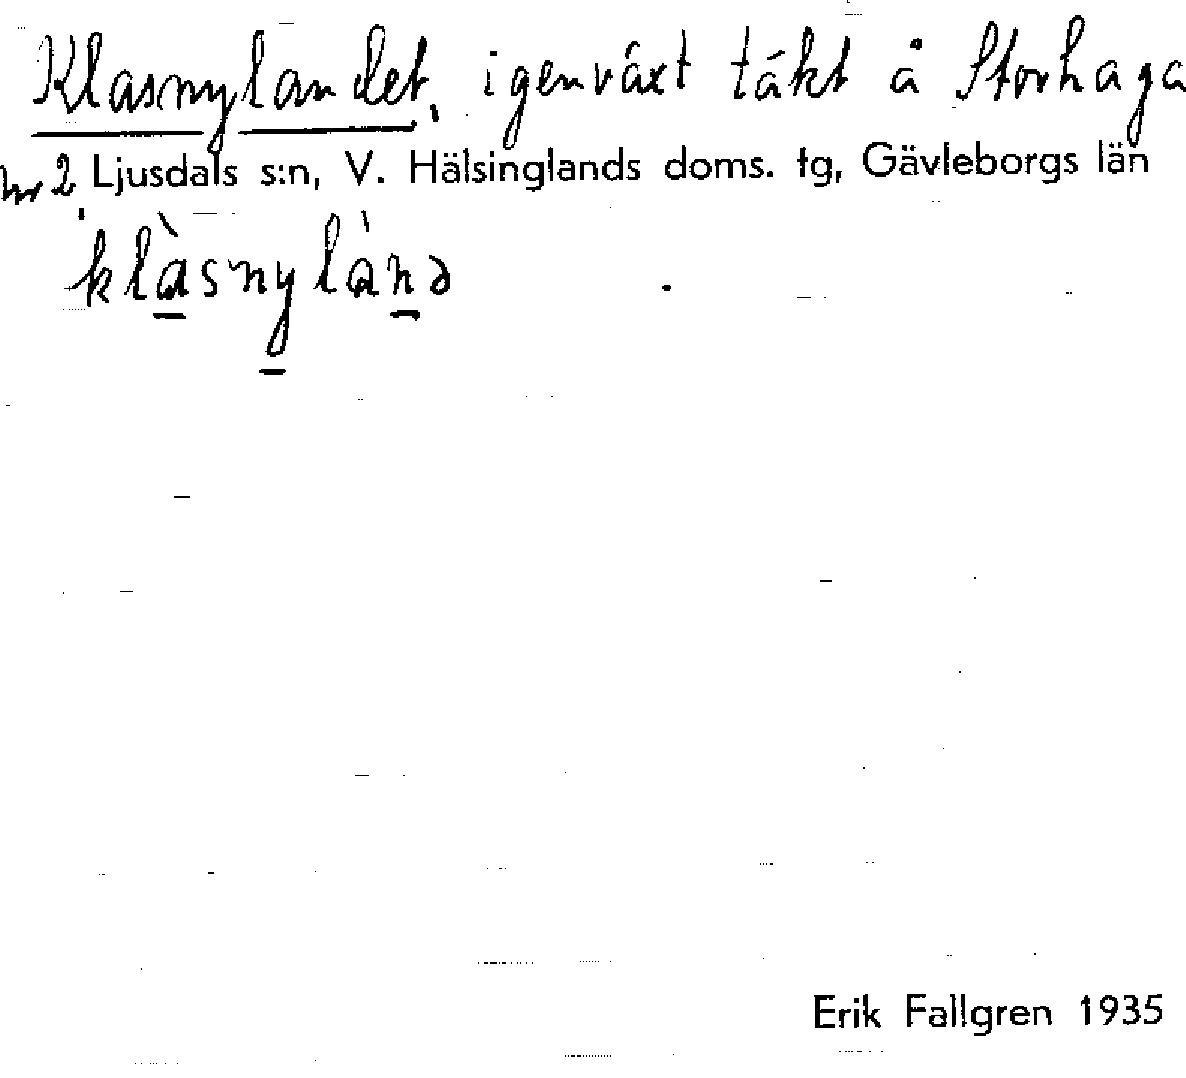 Klasnylandet, igenväxt täkt å Storhaga
nr 2. Ljusdals s:n, V. Hälsinglands doms. tg, Gävleborgs län
klàsnylànə
Erik Fallgren 1935